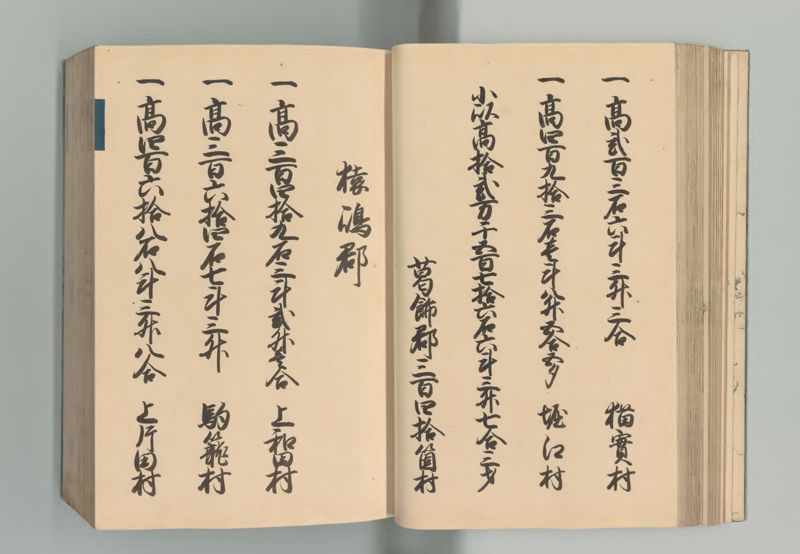 一高貳百三石六斗三升三合 猫實村
一高四百九拾三石壱斗八升五合五夕 堀江村
小以高拾貳万千五百七拾六石六斗三升七合三夕
葛飾郡三百四拾箇村
猿嶋郡
一高三百四拾九石三斗貳升壱合 上和田村
一高三百六拾四石七斗三升 駒籠村
一高四百六拾八石八斗三升八合 上片田村